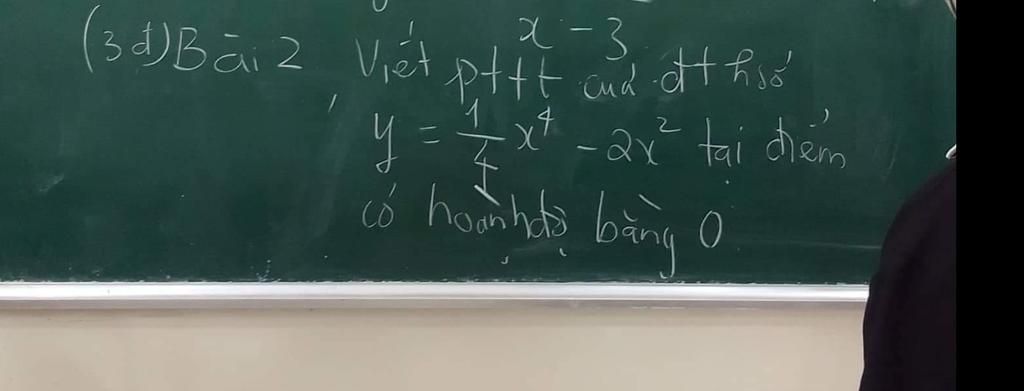 x - 3
(3đ) Bài 2 Viết pttt của đt hsố
y = 1/4 x⁴ - 2x² tại điểm
có hoành độ bằng 0